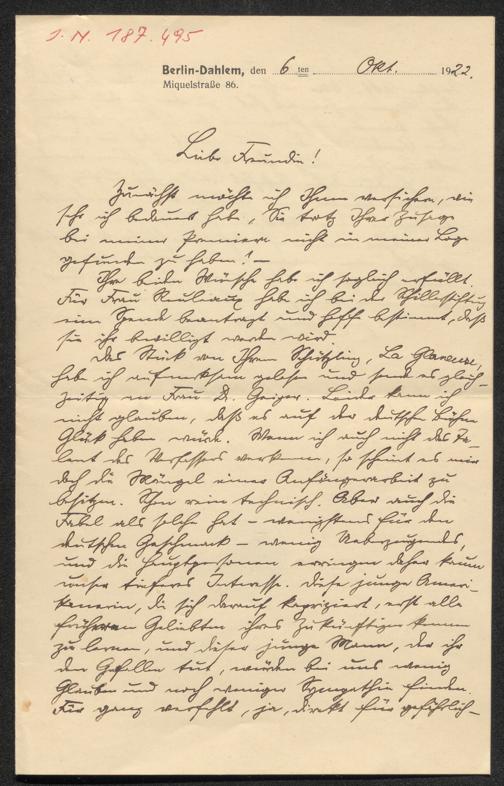 J. N. 187.495
Berlin-Dahlem, den 6ten Okt. 1922.
Miquelstraße 86.
Liebe Freundin!
Zunächst möchte ich Ihnen versichern, wie
sehr ich bedauert habe, Sie trotz Ihrer Zusage
bei meiner Premiere nicht in meiner Loge
gefunden zu haben! —
Ihre beiden Wünsche hab ich sogleich erfüllt.
Für Frau Reulaux hab ich bei der Schillerstiftung
eine Spende beantragt und hoffe bestimmt, daß
sie ihr bewilligt werden wird.
Das Stück von Ihrem Schützling, La Glaneuse,
hab ich aufmerksam gelesen und sende es gleich-
zeitig an Frau D. Geiger. Leider kann ich
nicht glauben, daß es auf der deutschen Bühne
Glück haben würde. Wenn ich auch nicht das Ta-
lent des Verfassers verkenne, so scheint es mir
doch die Mängel einer Anfängerarbeit zu
besitzen. Schon rein technisch. Aber auch die
Fabel als solche hat – wenigstens für den
deutschen Geschmack – wenig Ueberzeugendes,
und die Hauptpersonen erringen daher kaum
unser tieferes Interesse. Diese junge Ameri-
kanerin, die sich darauf kapriziert, erst alle
früheren Geliebten ihres Zukünftigen kennen
zu lernen, und dieser junge Mann, der ihr
den Gefallen tut, würden bei uns wenig
Glauben und noch weniger Sympathie finden.
Für ganz verfehlt, ja, direkt für gefährlich